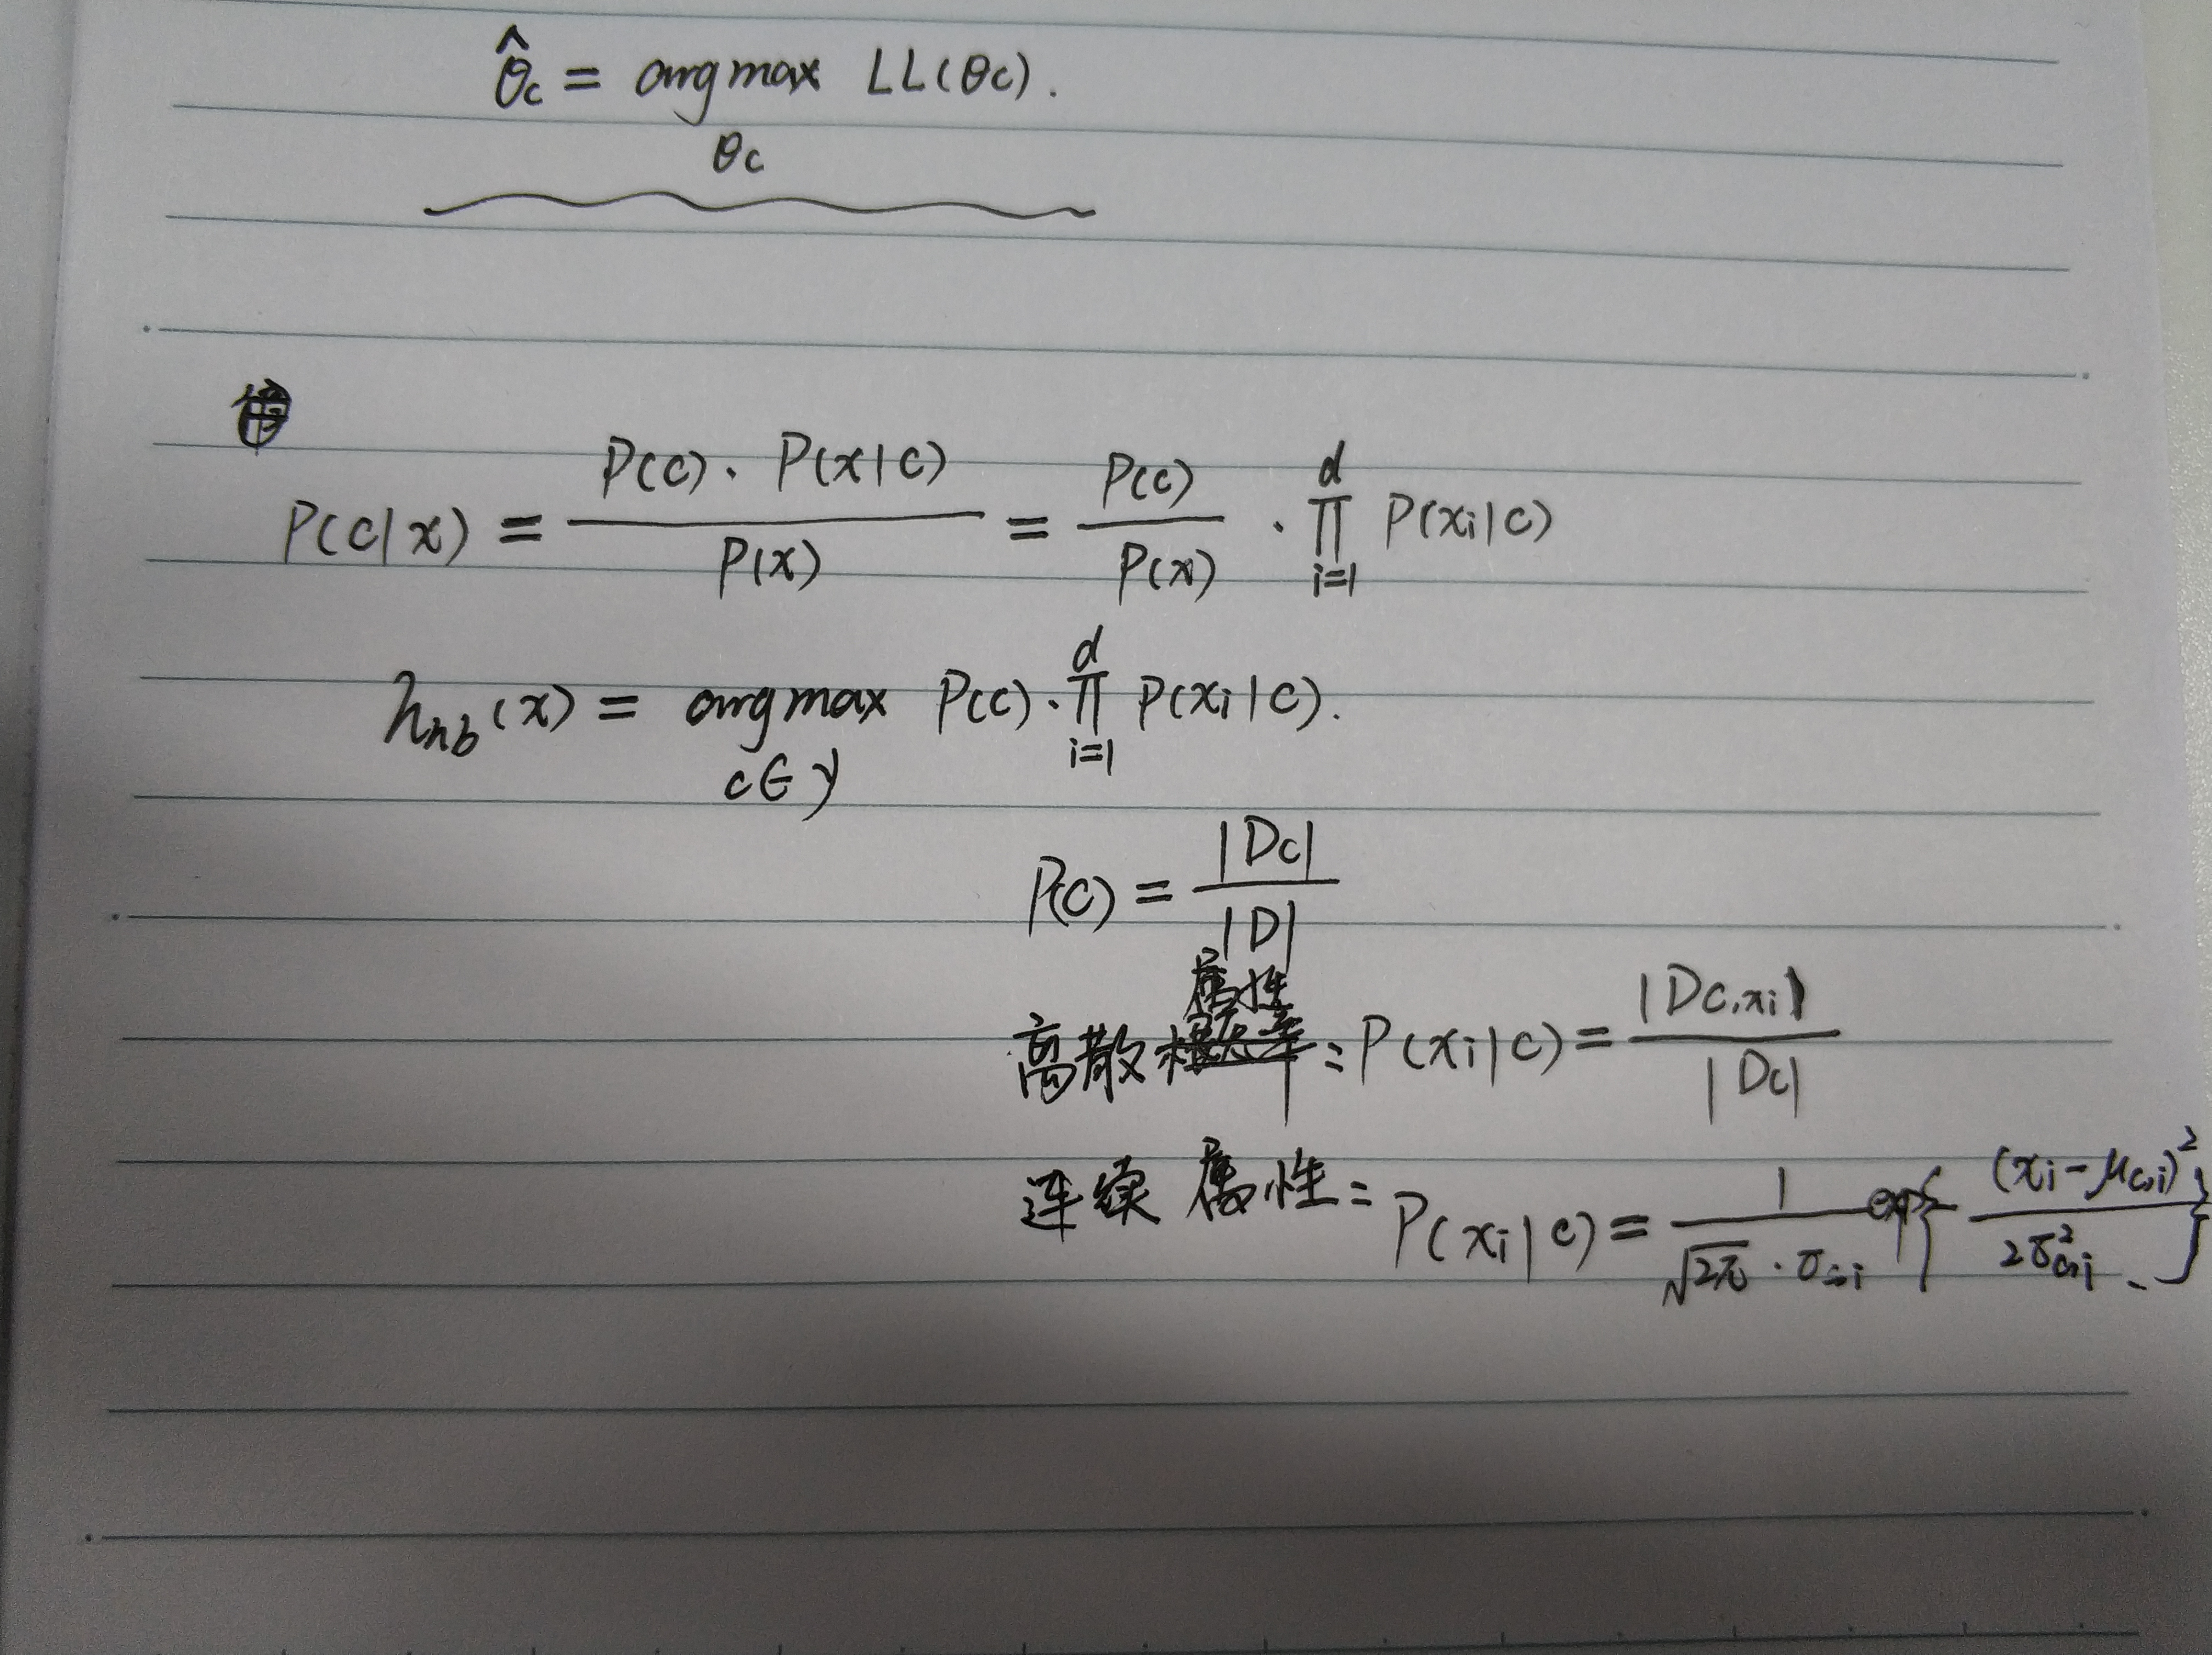 θ̂c = arg max LL(θc).
θc
P(c|x) = P(c)·P(x|c) / P(x) = P(c) / P(x) · ∏_{i=1}^{d} P(xi|c)
h_nb(x) = arg max P(c)·∏_{i=1}^{d} P(xi|c).
c∈y
P(c) = |Dc| / |D|
离散属性:P(xi|c) = |Dc,xi| / |Dc|
连续属性:P(xi|c) = 1 / √2π·σc,i exp{- (xi-μc,i)² / 2σ²c,i}